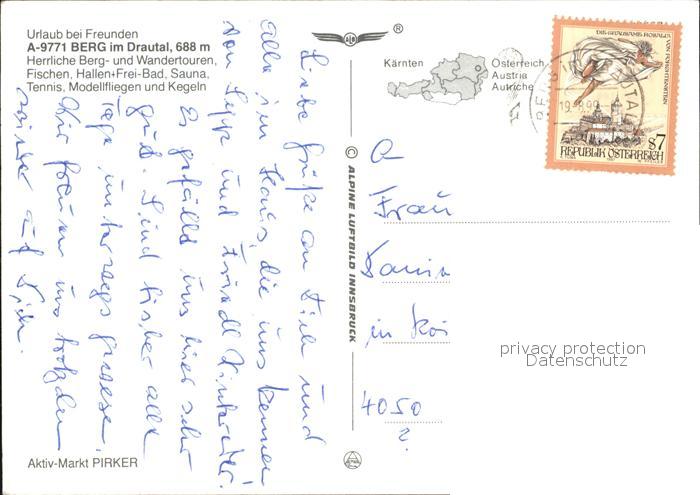 Urlaub bei Freunden
A-9771 BERG im Drautal, 688 m
Herrliche Berg- und Wandertouren,
Fischen, Hallen+Frei-Bad, Sauna,
Tennis, Modellfliegen und Kegeln
®
Kärnten
Österreich
Austria
Autriche
DIE GRAUSAME ROSALIA VON FORCHTENSTEIN
19.-8.99
S7
REPUBLIK ÖSTERREICH
Liebe Grüße an Dich und
alle im Haus, die uns kennen
von Sepp und Friedl
Es gefällt uns hier sehr
gut. Sind bisher alle
Tage unterwegs gewesen.
Wir freuen uns trotzdem
wieder auf Dich.
© ALPINE LUFTBILD INNSBRUCK
Frau
in
4050
privacy protection
Datenschutz
Aktiv-Markt PIRKER